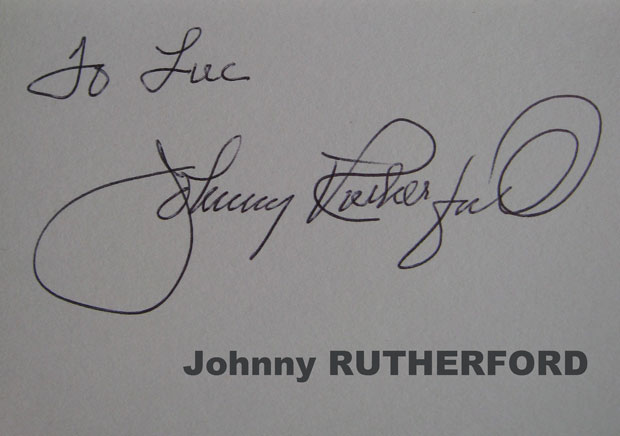 To Luc
Johnny Rutherford
Johnny RUTHERFORD